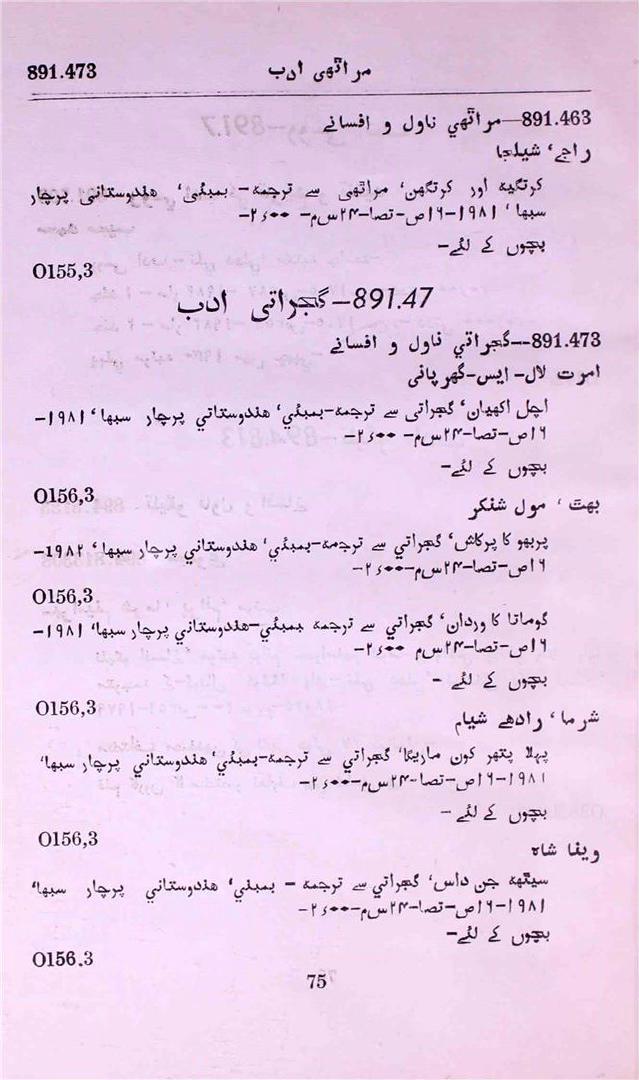 مراٹھی ادب 891.473
891.463—مراٹھی ناول و افسانے
راجے، شیلجا
کرتگیہ اور کرتگھن، مراٹھی سے ترجمہ- بمبئی، ھندوستانی پرچار
سبھا، ۱۹۸۱-۱۶ص-تصا-۲۴س م- ۲۶۰۰-
بچوں کے لئے-
O155,3
891.47-گجراتی ادب
891.473--گجراتی ناول و افسانے
امرت لال- ایس-گھرپانی
اچل اکھیان، گجراتی سے ترجمہ-بمبئی، ھندوستانی پرچار سبھا، ۱۹۸۱-
۱۶ص-تصا-۲۴س م- ۲۶۰۰-
بچوں کے لئے-
O156,3
بھٹ، مول شنکر
پربھو کا پرکاش، گجراتی سے ترجمہ-بمبئی، ھندوستانی پرچار سبھا، ۱۹۸۲-
۱۶ص-تصا-۲۴س م-۲۶۰۰-
O156,3
گوماتا کا وردان، گجراتی سے ترجمہ بمبئی-ھندوستانی پرچار سبھا، ۱۹۸۱-
۱۶ص-تصا-۲۴س م ۲۶۰۰-
بچوں کے لئے -
O156,3
شرما، رادھے شیام
پہلا پتھر کون ماریگا، گجراتی سے ترجمہ-بمبئی، ھندوستانی پرچار سبھا،
۱۹۸۱-۱۶ص-تصا-۲۴س م-۲۶۰۰-
بچوں کے لئے -
O156,3
ویفا شاہ
سیٹھہ جن داس، گجراتی سے ترجمہ - بمبئی، ھندوستانی پرچار سبھا،
۱۹۸۱-۱۶ص-تصا-۲۴س م-۲۶۰۰-
بچوں کے لئے-
O156.3
75